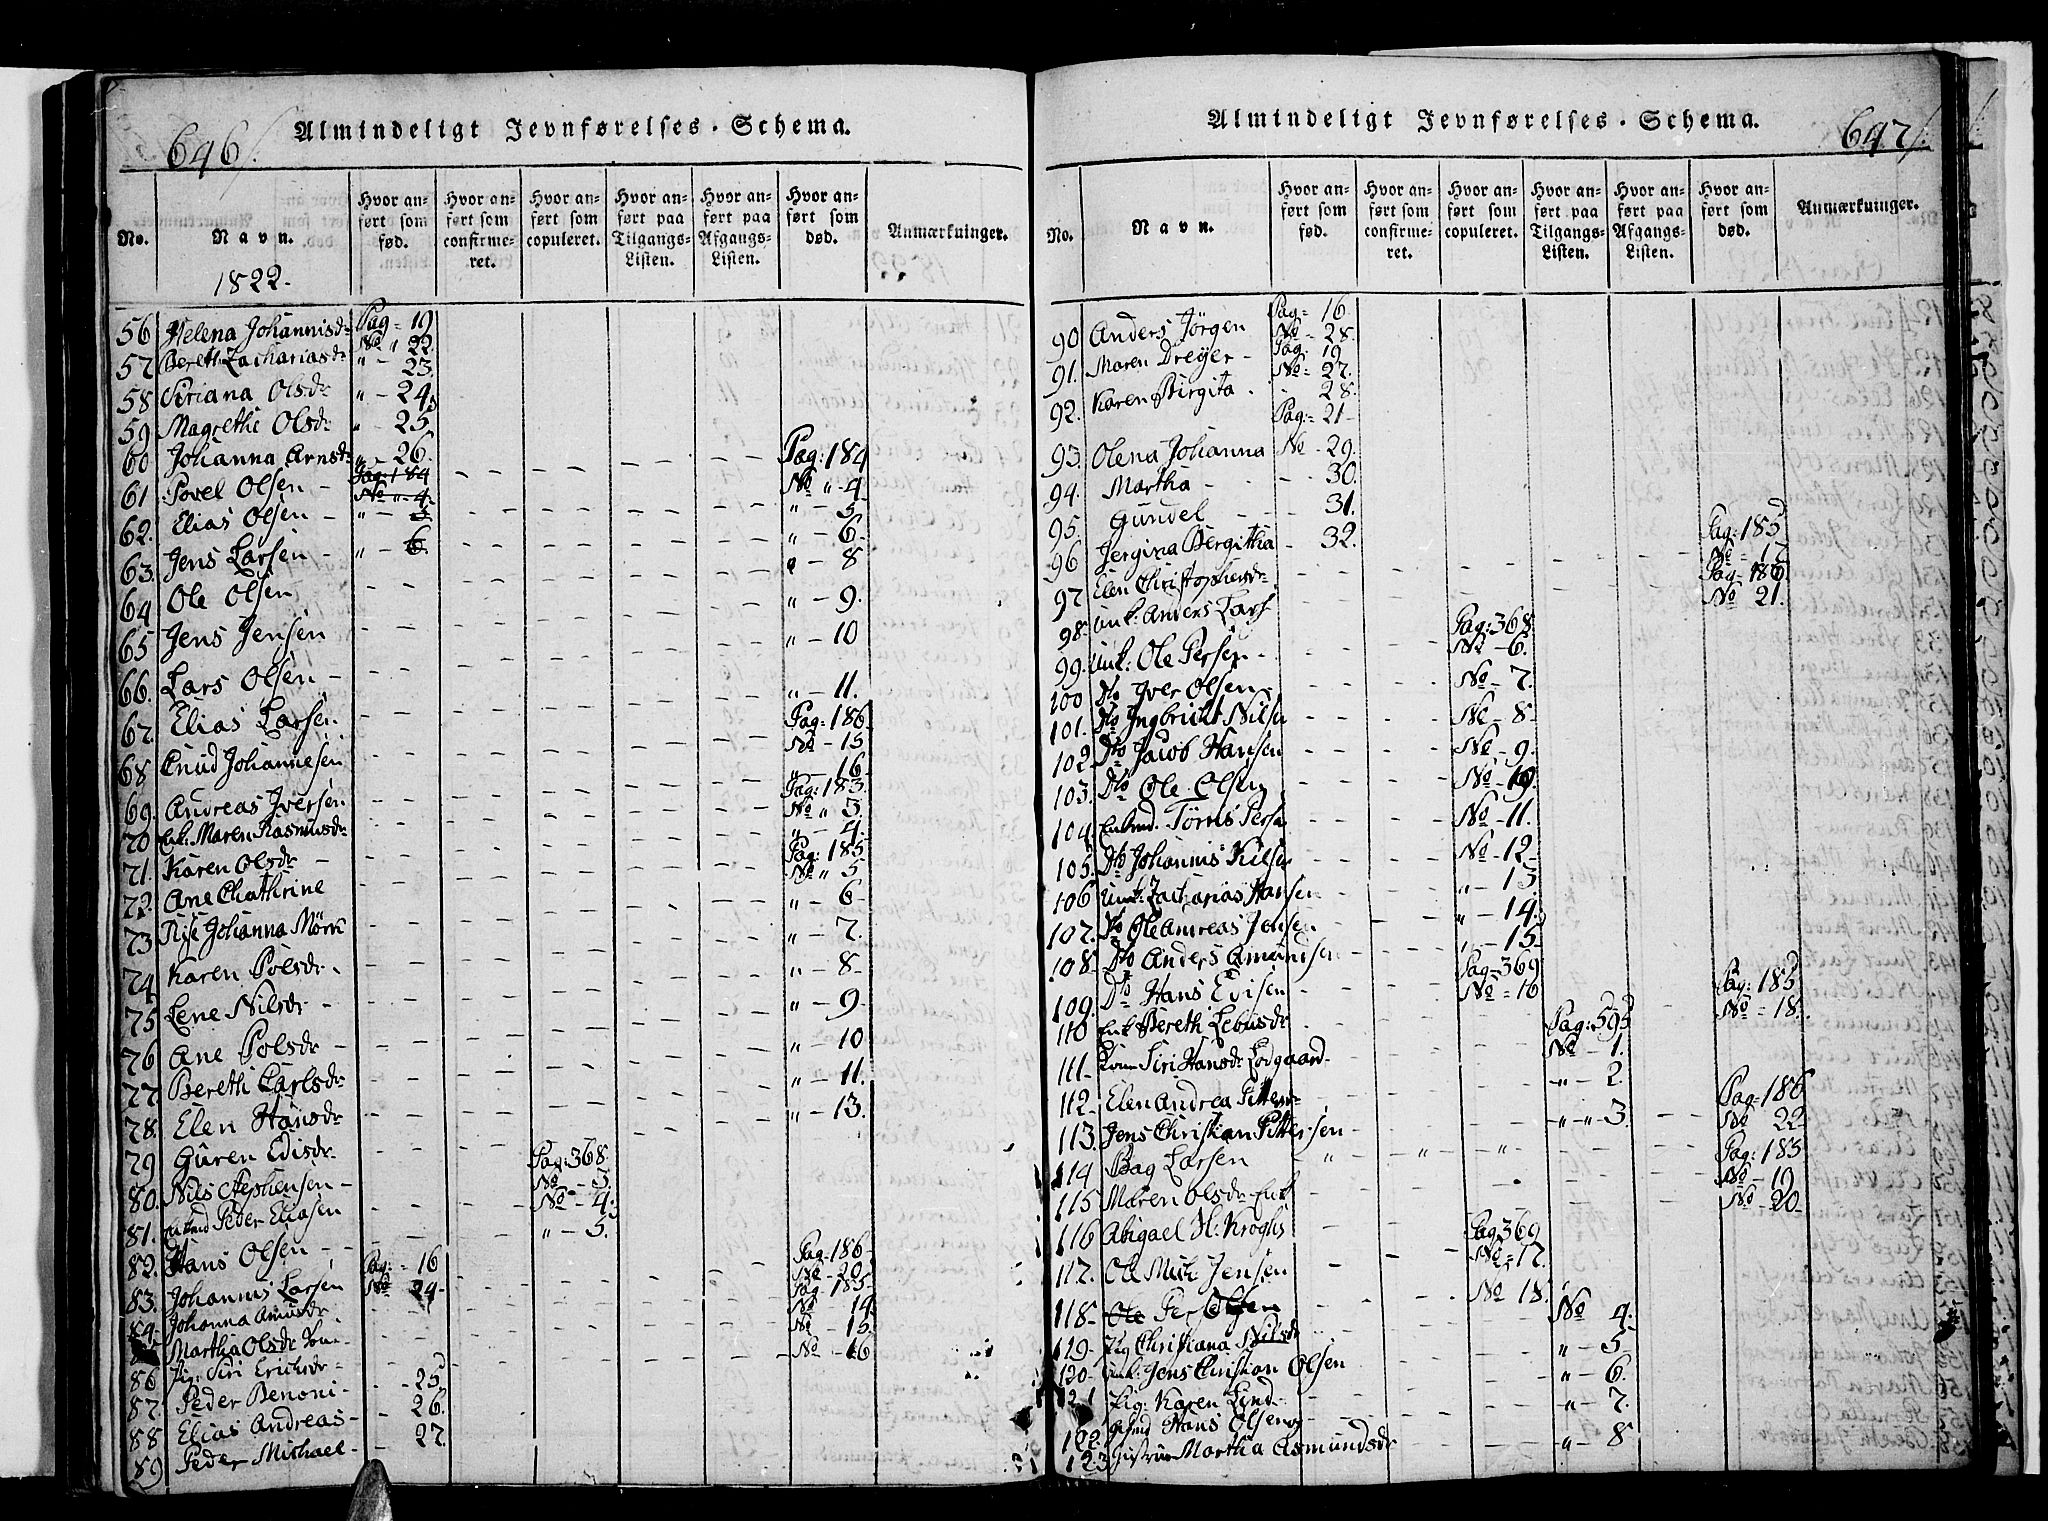 646/. Almindeligt Jevnførelses-Schema.
No. Navn. Hvor anført som fød. Hvor anført som confirmeret. Hvor anført som copuleret. Hvor anført paa Tilgangs-Listen. Hvor anført paa Afgangs-Listen. Hvor anført som død. Anmærkninger.
1822.
56 Helena Johannisdr Pag = 19 No " 22
57 Bereth Zachariasdr " - 23.
58 Siriana Olsdr " - 24
59 Magrethe Olsdr " - 25
60 Johanna Arnsdr " 26.
61 Povel Olsen - Pag: 184 No " - 4. Pag: 184 No " - 4.
62. Elias Olsen - " - 5 " - 5
63. Jens Larsen - " - 6. " - 6.
64 Ole Olsen " - 8
65 Jens Jensen " - 9.
66. Lars Olsen - " - 10
67. Elias Larsen " - 11.
68 Cnud Johannesen Pag: 186. No - 15
69. Andreas Iversen - 16
70 Enk: Maren Rasmusdr Pag: 183. No " 3.
71. Karen Olsdr - " - 4.
72. Ane Chathrine Pag: 185 No " 5
73 Johanna Mørk " - 6-
74 Karen Polsdr. " - 7.
75 Lene Nilsdr - " - 8-
76 Ane Polsdr - " - 9.
77. Berethe Carlsdr " - 10
78. Elen Hansdr " - 11.
79 Guren Edisdr " - 13.
80. Nils Stephensen - Pag: 368. No - 3.
81. Enkmd Peder Eliasen No - 4.
82. Hans Olsen - - " - 5.
83. Johannis Larsen Pag: = 16 No 24- Pag: 186- No - 20.
84. Johanna Amundsdr Pag: 185- No - 14.
Martha Olsdr No - 15.
86 Pig: Siri Erichsdr - No - 16
87. Peder Benoni - - 25
88 Elias Andreas - - 26.
89 Peder Michael - - 27.
Almindeligt Jevnførelses-Schema. 647/.
No. Navn. Hvor anført som fød. Hvor anført som confirmeret. Hvor anført som copuleret. Hvor anført paa Tilgangs-Listen. Hvor anført paa Afgangs-Listen. Hvor anført som død. Anmærkninger.
90 Anders Jörgen Pag = 16. No - 28.
91. Maren Dreyer - Pag. 19 No = 27.
92. Karen Birgita . 28.
93. Olena Johanna Pag: = 21 - No - 29.
94. Martha - - - 30.
95 Gundel - - 31.
96 Jergina Bergitha - 32.
97 Elen Christophersdr Pag: 185 No = 17
98. Unk: Anders Lars Pag = 186. No 21.
99. Unk: Ole Persen - Pag: 368. No - 6.
100 Dto Iver Olsen - No - 7.
101. Dto Ingbricht Nilsen No - 8-
102. Dto Jacob Hansen No - 9.
103. Dto Ole Olsen No - 10.
104. Enkmd. Tørris Persen No - 11.
105. Dto Johannis Nilsen No - 12-
106 Unk: Zacharias Hansen " - 13.
107. Dto Ole Andreas Jensen " - 14.
108. Dto Anders Amundsen " - 15-
109. Dto Hans Edisen Pag = 369 No = 16
110 Enk Bereth Pag: 185 No = 18.
111. Kone Siri Hansdr Lodgaard - Pag: 595 No - 1.
112- Elen Andrea Pettersdr " - 2.
113. Jens Christian Pettersen - " " 3. Pag = 186 No 22-
114 Larsen Pag: 185 No - 19
115 Maren Olsdr Enk No - 20-
116 Abigael H: Kroghs Pag 369. No = 17.
117. Ole Mich Jensen No 18.
118- Ole Per Olsen No 4.
129- Pig Christiana Nilsdr " - 5-
120- Unk: Jens Christian Olsen " - 6.
121 Pig: Karen Lind - " - 7.
122. Hans Olsen
123 Martha Asmundsdr " - 8